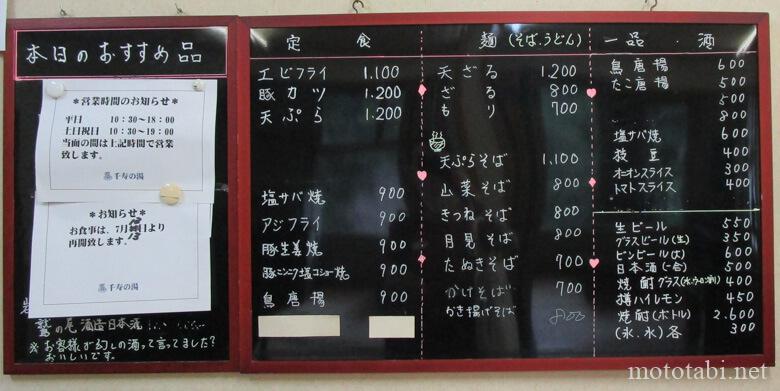 本日のおすすめ品
＊営業時間のお知らせ＊
平日 10:30～18:00
土日祝日 10:30～19:00
当面の間は上記時間で営業
致します。
千寿の湯
＊お知らせ＊
お食事は、7月 13 日より
再開致します。
千寿の湯
鷲の尾 酒造日本酒
※お客様が幻しの酒って言ってました?
おいしいです。
定 食
エビフライ 1,100
豚カツ 1,200
天ぷら 1,200
塩サバ焼 900
アジフライ 900
豚生姜焼 900
豚ニンニク塩コショー焼 900
鳥唐揚 900
麺(そば.うどん)
天ざる 1,200
ざる 800
もり 700
天ぷらそば 1,100
山菜そば 800
きつねそば 800
月見そば 800
たぬきそば 700
かけそば 700
かき揚げそば 800
一品 . 酒
鳥唐揚 600
たこ唐揚 500
500
800
塩サバ焼 600
枝豆 400
オニオンスライス 300
トマトスライス 400
生ビール 550
グラスビール(生) 350
ビンビール(大) 600
日本酒(一合) 500
焼酎グラス 400
樽ハイレモン 450
焼酎(ボトル) 2.600
(氷.水)各 300
mototabi.net